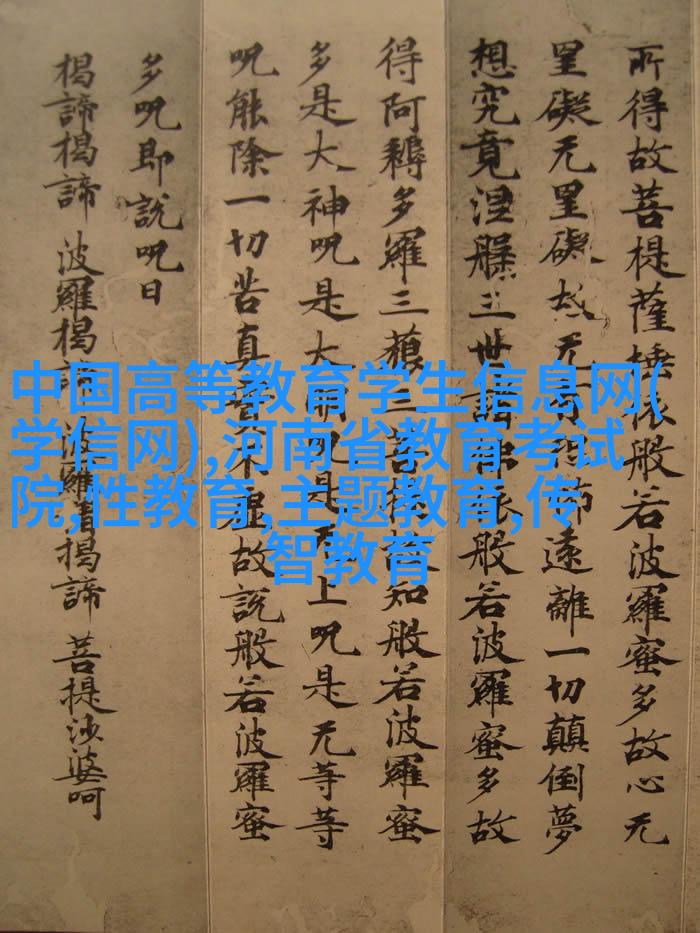 所得故菩提薩埵依般若波羅蜜多故心无
罣礙无罣礙故无有恐怖遠離一切顛倒夢
想究竟涅槃三世諸佛依般若波羅蜜多故
得阿耨多羅三藐三菩提故知般若波羅蜜
多是大神呪是大明呪是无上呪是无等等
呪能除一切苦真實不虛故說般若波羅蜜
多呪即說呪曰
揭諦揭諦 波羅揭諦 波羅僧揭諦 菩提沙婆呵
中国高等教育学生信息网(
学信网),河南省教育考试
院,性教育,主题教育,传
智教育